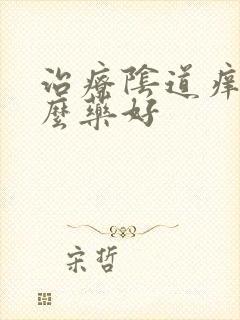 治療陰道痒
麼藥好
宋哲